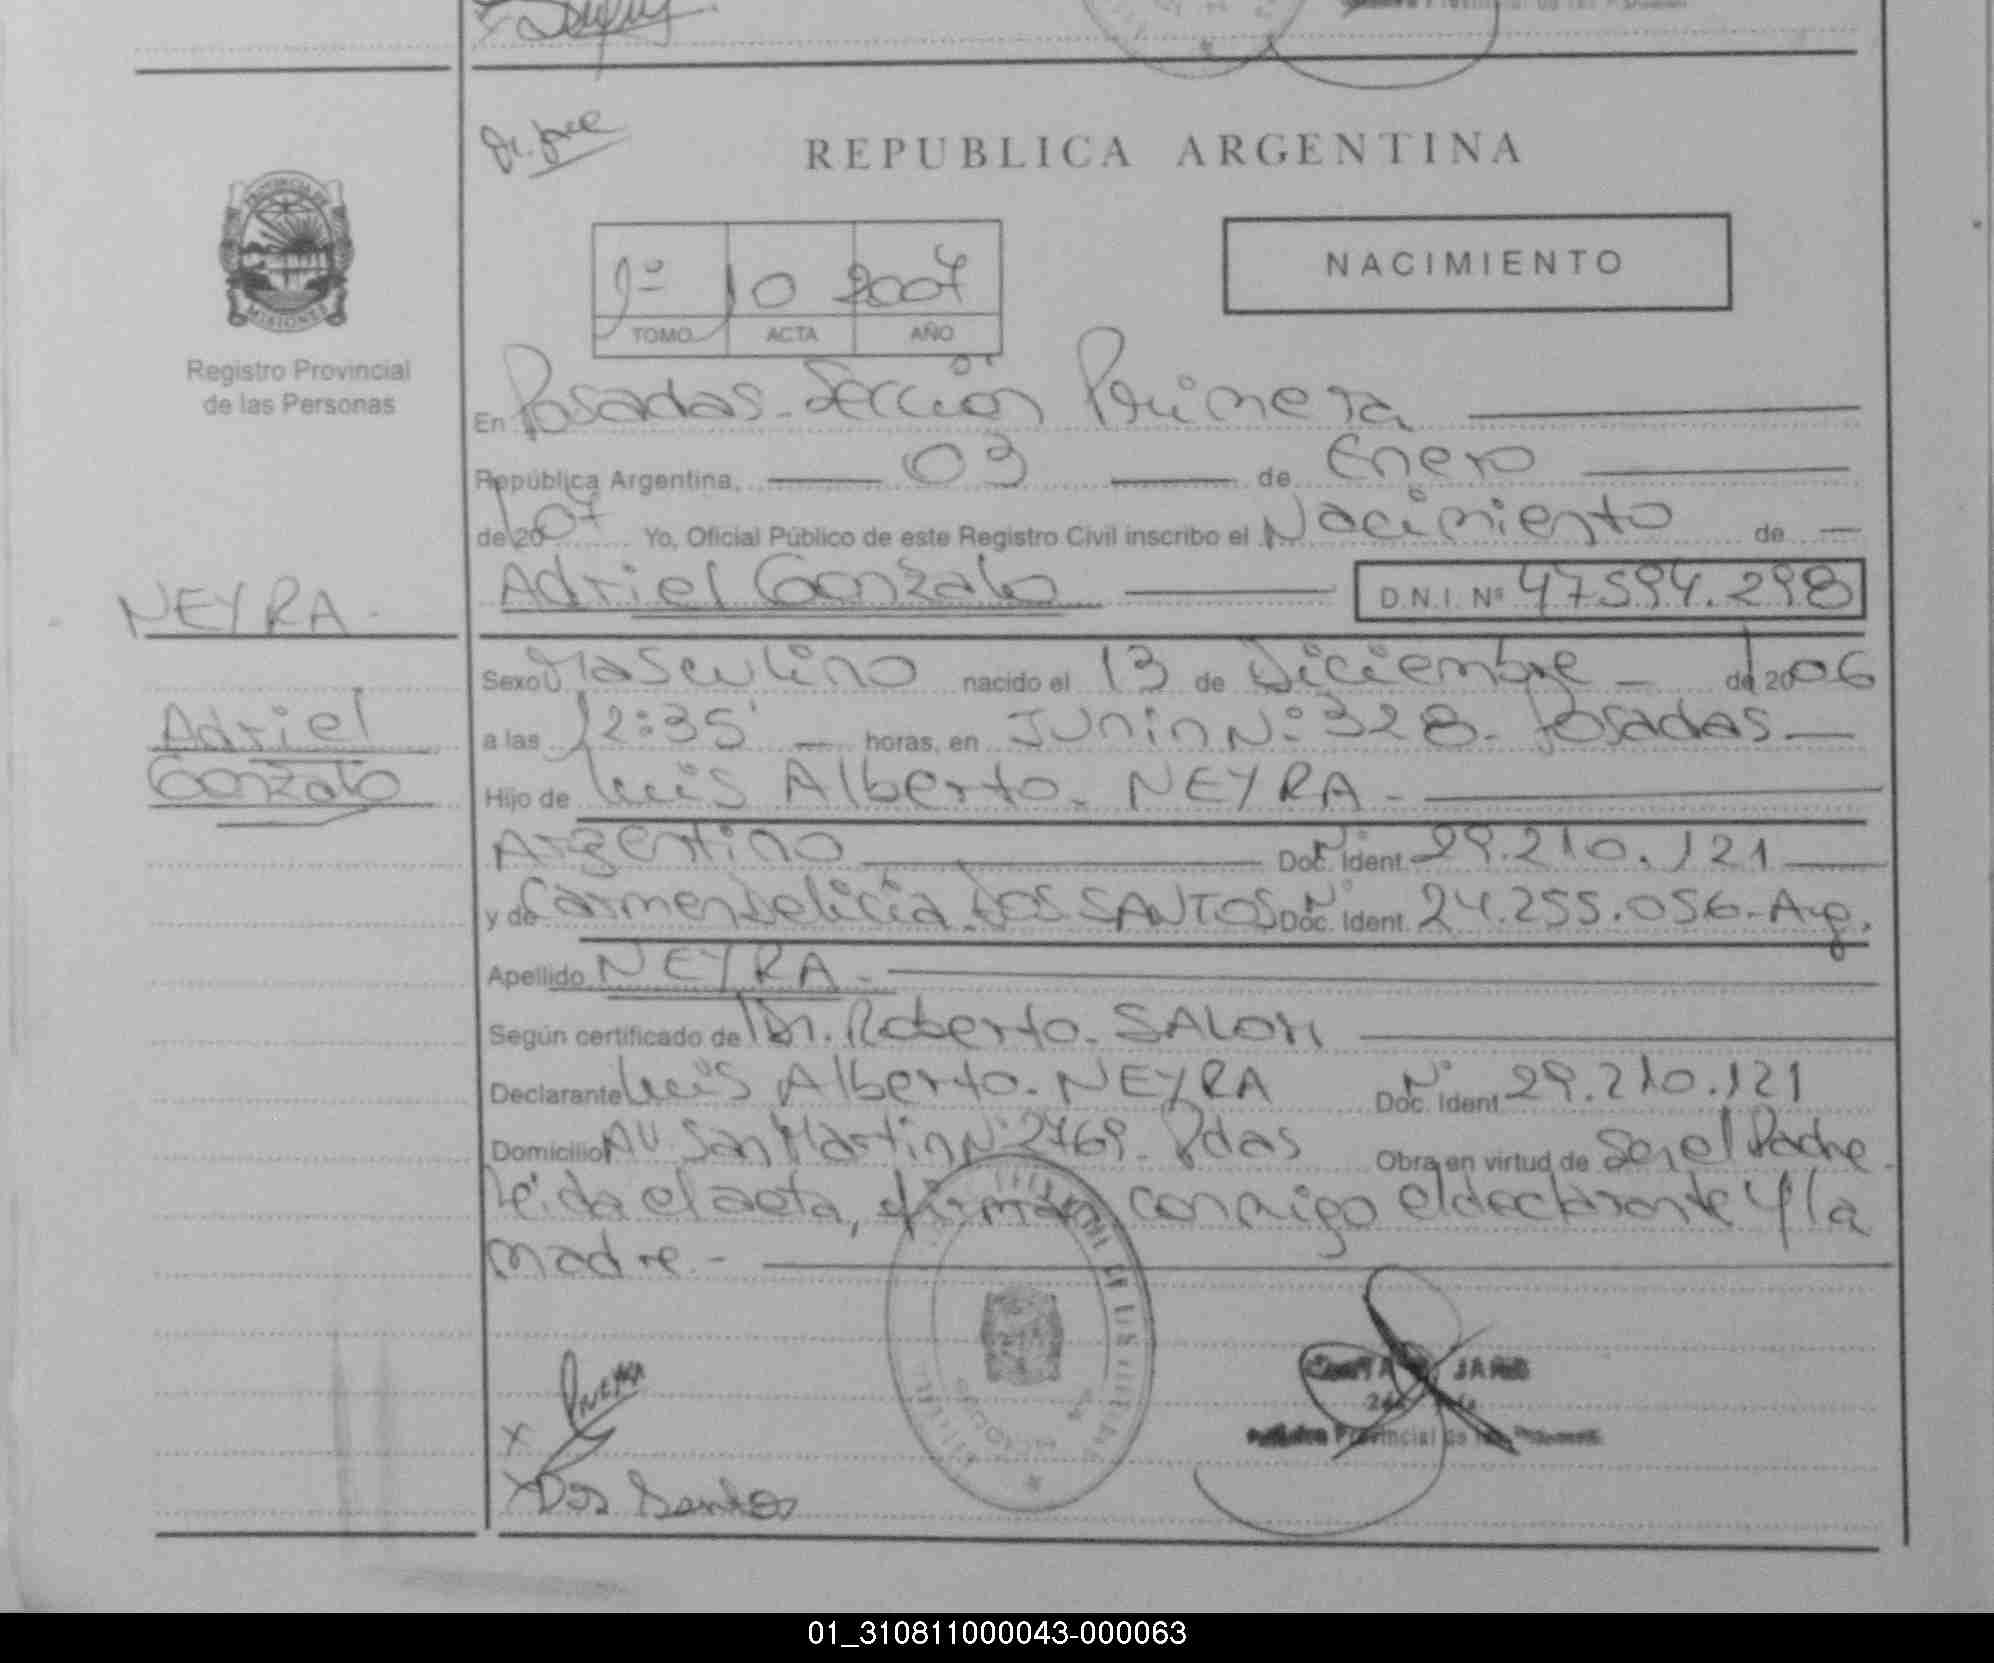 REPUBLICA ARGENTINA
PROVINCIA DE
MISIONES
Registro Provincial
de las Personas
1º 10 2007
TOMO ACTA AÑO
NACIMIENTO
En Posadas - Sección Primera
República Argentina, 03 de Enero
de 2007 Yo, Oficial Público de este Registro Civil inscribo el Nacimiento de
Adriel Gonzalo D.N.I. Nº 47.594.298
NEYRA -
Adriel
Gonzalo
Sexo Masculino nacido el 13 de Diciembre de 2006
a las 12:35' horas, en Junin Nº 328 - Posadas
Hijo de Luis Alberto - NEYRA -
Argentino Doc. Ident. Nº 29.210.121
y de Carmen Delicia DOS SANTOS Doc. Ident. Nº 24.255.056 - Arg.
Apellido NEYRA -
Según certificado de Dr. Roberto -
Declarante Luis Alberto - NEYRA Doc. Ident Nº 29.210.121
Domicilio AV. San Martin Nº 2769 - Pdas Obra en virtud de Ser el Padre -
Leida el acta, firman conmigo el declarante y la
madre -
x NEYRA
x Dos Santos
Provincial de las
01_310811000043-000063